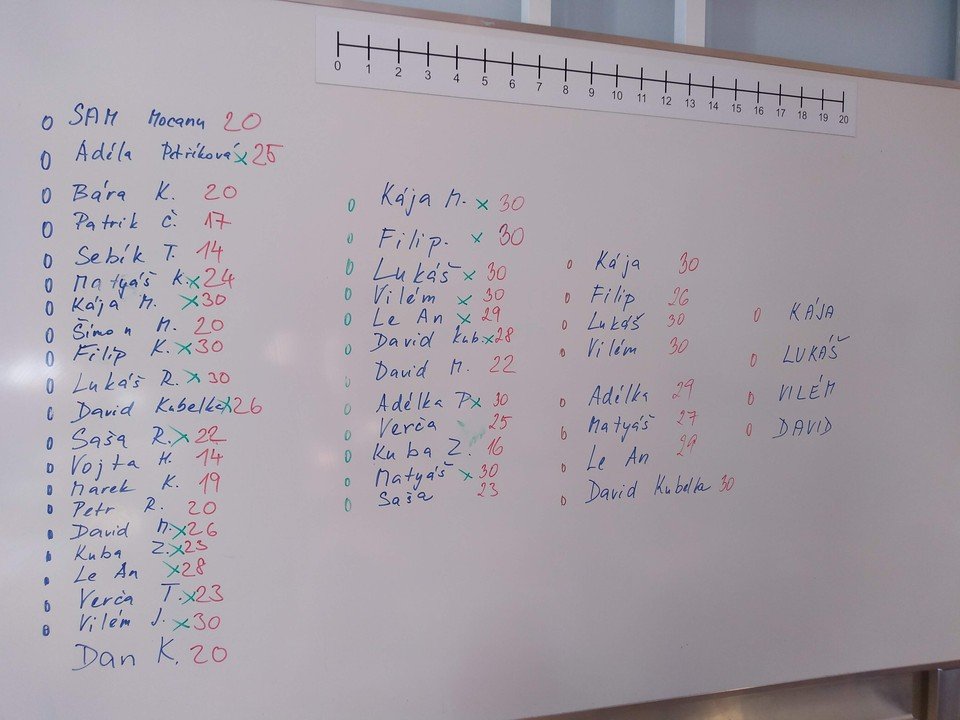 0 1 2 3 4 5 6 7 8 9 10 11 12 13 14 15 16 17 18 19 20
0 SAM Mocanu 20
0 Adéla Petříková x 25
0 Bára K. 20
0 Patrik Č. 17
0 Sebík T. 14
0 Matyáš K. x 24
0 Kája M. x 30
0 Šimon M. 20
0 Filip K. x 30
0 Lukáš R. x 30
0 David Kubelka x 26
0 Saša R. x 22
0 Vojta H. 14
0 Marek K. 19
0 Petr R. 20
0 David M. x 26
0 Kuba Z. x 23
0 Le An x 28
0 Verča T. x 23
0 Vilém J. x 30
Dan K. 20
0 Kája M. x 30
0 Filip. x 30
0 Lukáš x 30
0 Vilém x 30
0 Le An x 29
0 David Kub. x 28
David M. 22
0 Adélka P x 30
0 Verča 25
0 Kuba Z. 16
0 Matyáš x 30
0 Saša 23
0 Kája 30
0 Filip 26
0 Lukáš 30
0 Vilém 30
0 Adélka 29
0 Matyáš 27
0 Le An 29
0 David Kubelka 30
0 KÁJA
0 LUKÁŠ
0 VILÉM
0 DAVID